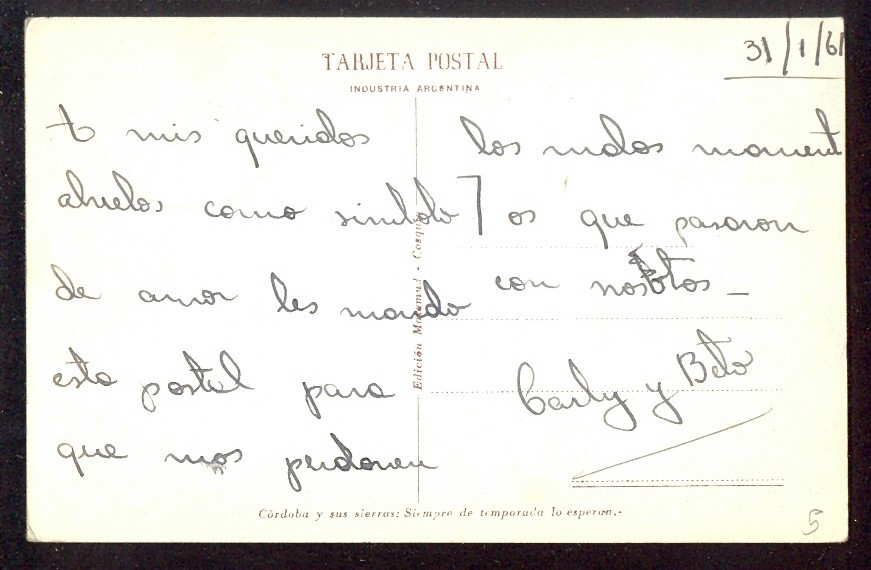 31/1/61
TARJETA POSTAL
INDUSTRIA ARGENTINA
A mis queridos
abuelos como simbolo
de amor les mando
esta postal para
que nos perdonen
los malos moment
os que pasaron
con nosotros —
Carly y Beto
Edición Mocamud - Cosquín
Córdoba y sus sierras: Siempre de temporada lo esperan.-
5